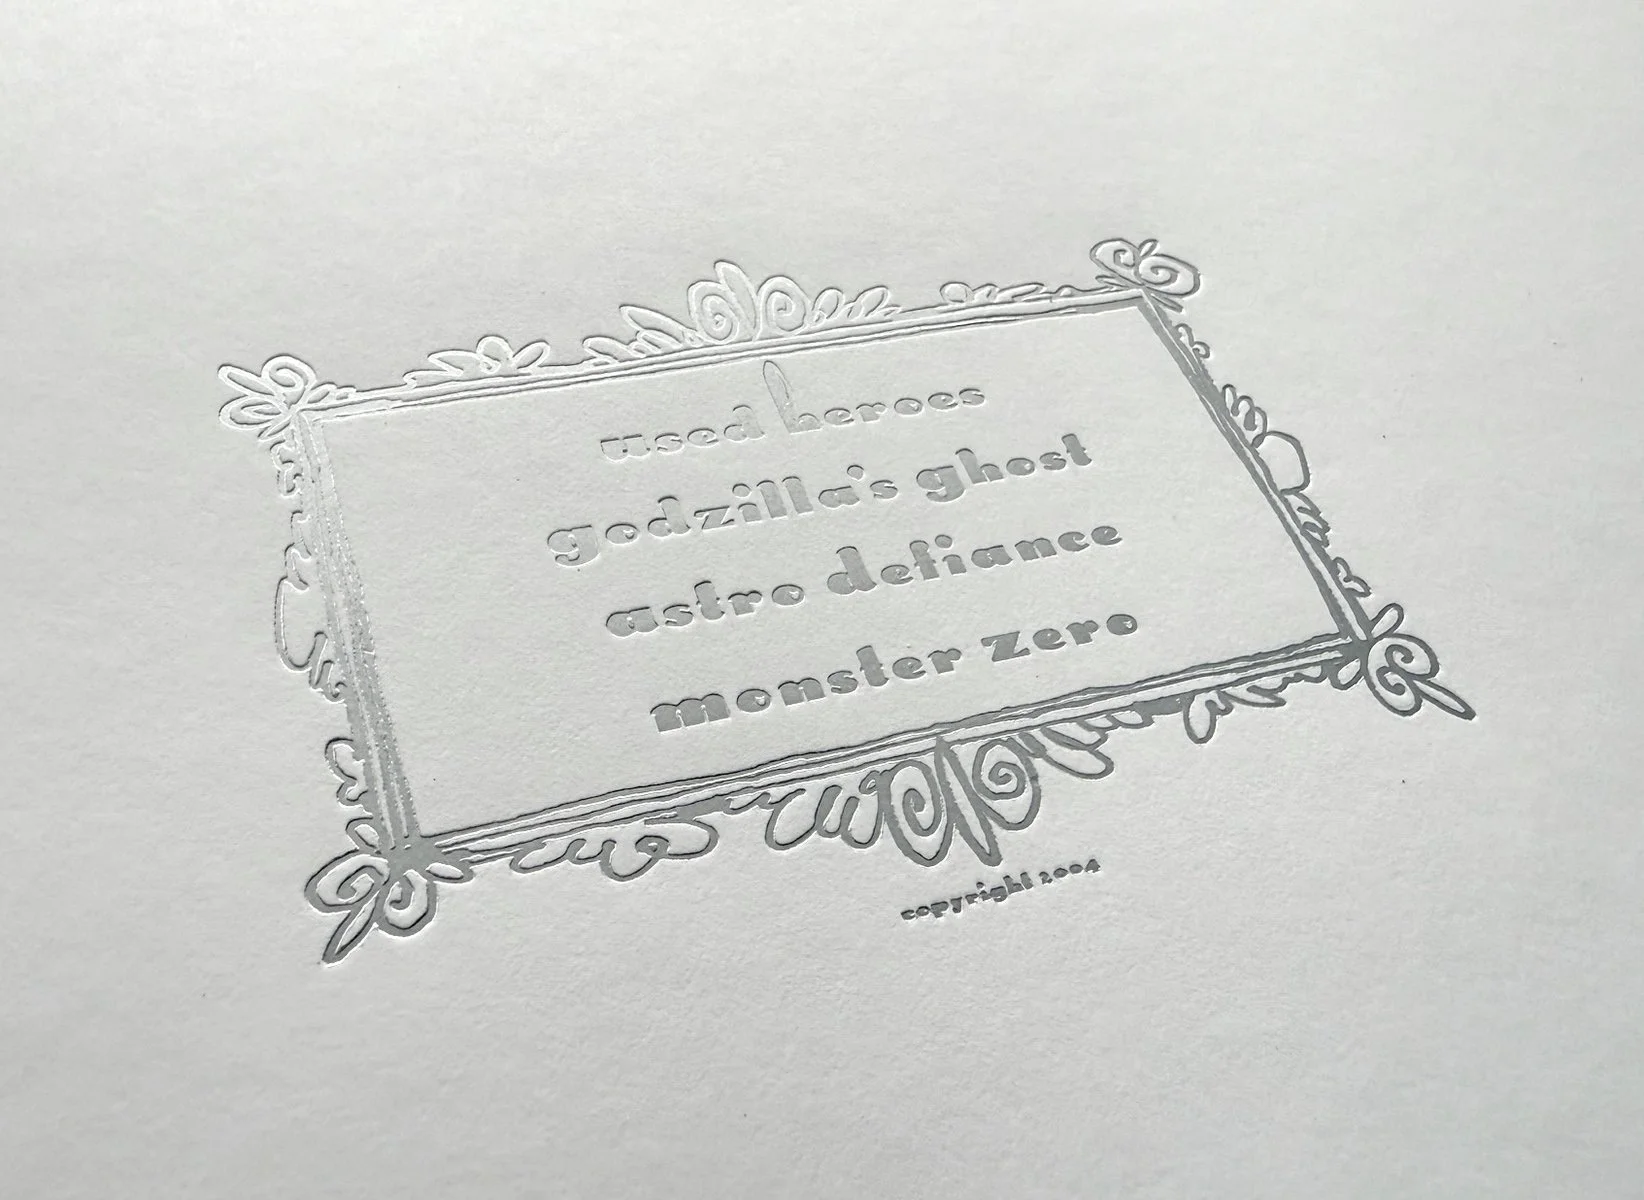 used heroes
godzilla's ghost
astro defiance
monster zero
copyright 2004